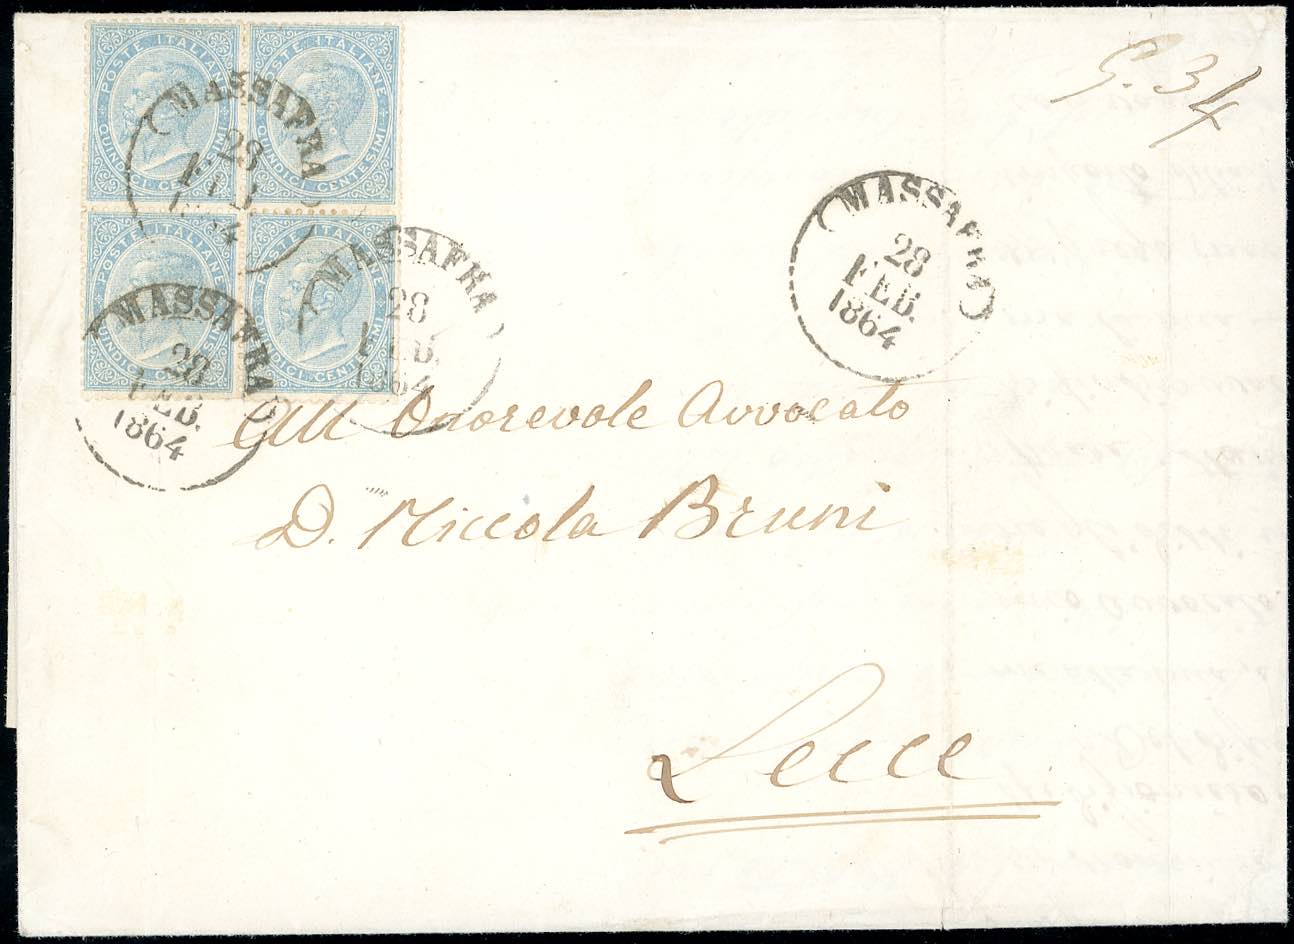 POSTE ITALIANE
QUINDICI CENTESIMI
POSTE ITALIANE
QUINDICI CENTESIMI
POSTE ITALIANE
QUINDICI CENTESIMI
POSTE ITALIANE
QUINDICI CENTESIMI
MASSAFRA
28
FEB
1864
MASSAFRA
28
FEB.
1864
MASSAFRA
28
FEB.
1864
MASSAFRA
28
FEB.
1864
34
All Onorevole Avvocato
D. Niccola Bruni
Lecce